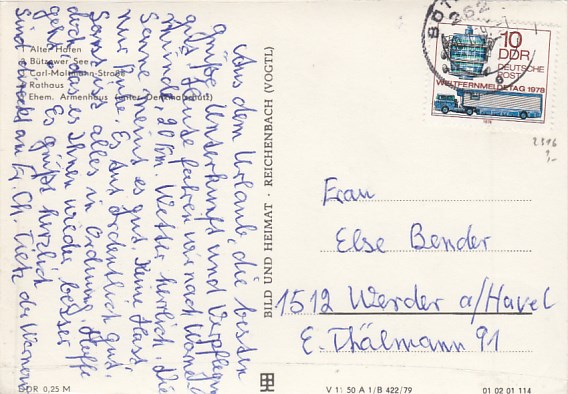 Alter Hafen
Bützower See
Carl-Moltmann-Straße
Rathaus
Ehem. Armenhaus (unter Denkmalschutz)
Aus dem Urlaub, die besten
Grüße. Unterkunft und Verpflegung
gut. Heute fahren wir nach Warnem
ünde. 20 km. Wetter herrlich. Die
Sonne meint es gut. Keine Hast
nur Ruhe. Es tut ordentlich gut.
Sonst ist alles in Ordnung. Hoffe
doch, das es Ihnen wieder besser
geht. Es grüßt herzlich
Ch. Tietz
BILD UND HEIMAT · REICHENBACH (VOGTL)
BÜTZ
262
10
DDR
DEUTSCHE
POST
WELTFERNMELDETAG 1978
2316
Frau
Else Bender
1512 Werder a/Havel
E. Thälmann 91
DDR 0,25 M
V 11 50 A 1/B 422/79
01 02 01 114